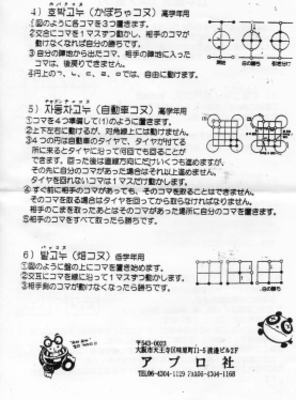 4) 호박고누 (かぼちゃコヌ) 高学年用
①図のように各コマを3つ置きます。
②交互にコマを1マスずつ動かし、相手のコマが
動けなくなれば自分の勝ちです。
③自分の陣地から出たコマ、相手の陣地に入った
コマは、後戻りできません。
5) 자동차고누 (自動車コヌ) 高学年用
①コマを4つ準備して(1)のように置きます。
②上下左右に動けるが、対角線上には動けません。
③4つの円は自動車のタイヤで、タイヤが付てる
所に来るとタイヤに沿って何回でも回ることが
できます。回った後は直線方向にだけいくつも進めますが、
その先に自分のコマがあった場合はそれ以上進めません。
タイヤを回れないコマは1マスだけ動かします。
④すぐ前に相手のコマがあっても、そのコマを取ることはできません。
そのコマを取る場合はタイヤを回ってから取らなければなりません。
相手のこまを取ったあとはそのコマがあった場所に自分のコマを置きます。
⑤相手のコマをすべて取ったら勝ちです。
6) 밭고누 (畑コヌ) 低学年用
①図のように盤の上にコマを置き始めます。
②交互にコマを線に沿って1マスずつ動かします。
③相手側のコマが動けなくなったら勝ちです。
〒543-0023
大阪市天王寺区味原町11-5 渡辺ビル2F
アプロ社
TEL06-4304-1129 Fax06-4304-1168